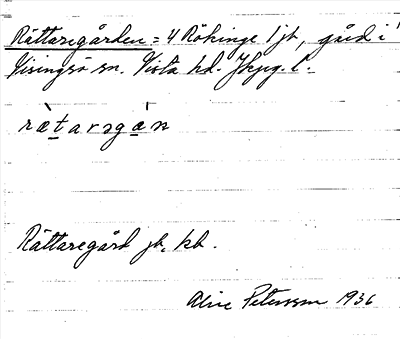 Rättaregården = 4 Rökinge 1 jb, gård i
Visingsö sn. Vista hd. Jkpg. l.
rætarəgán
Rättaregård jb, kb.
Aline Petersson 1936